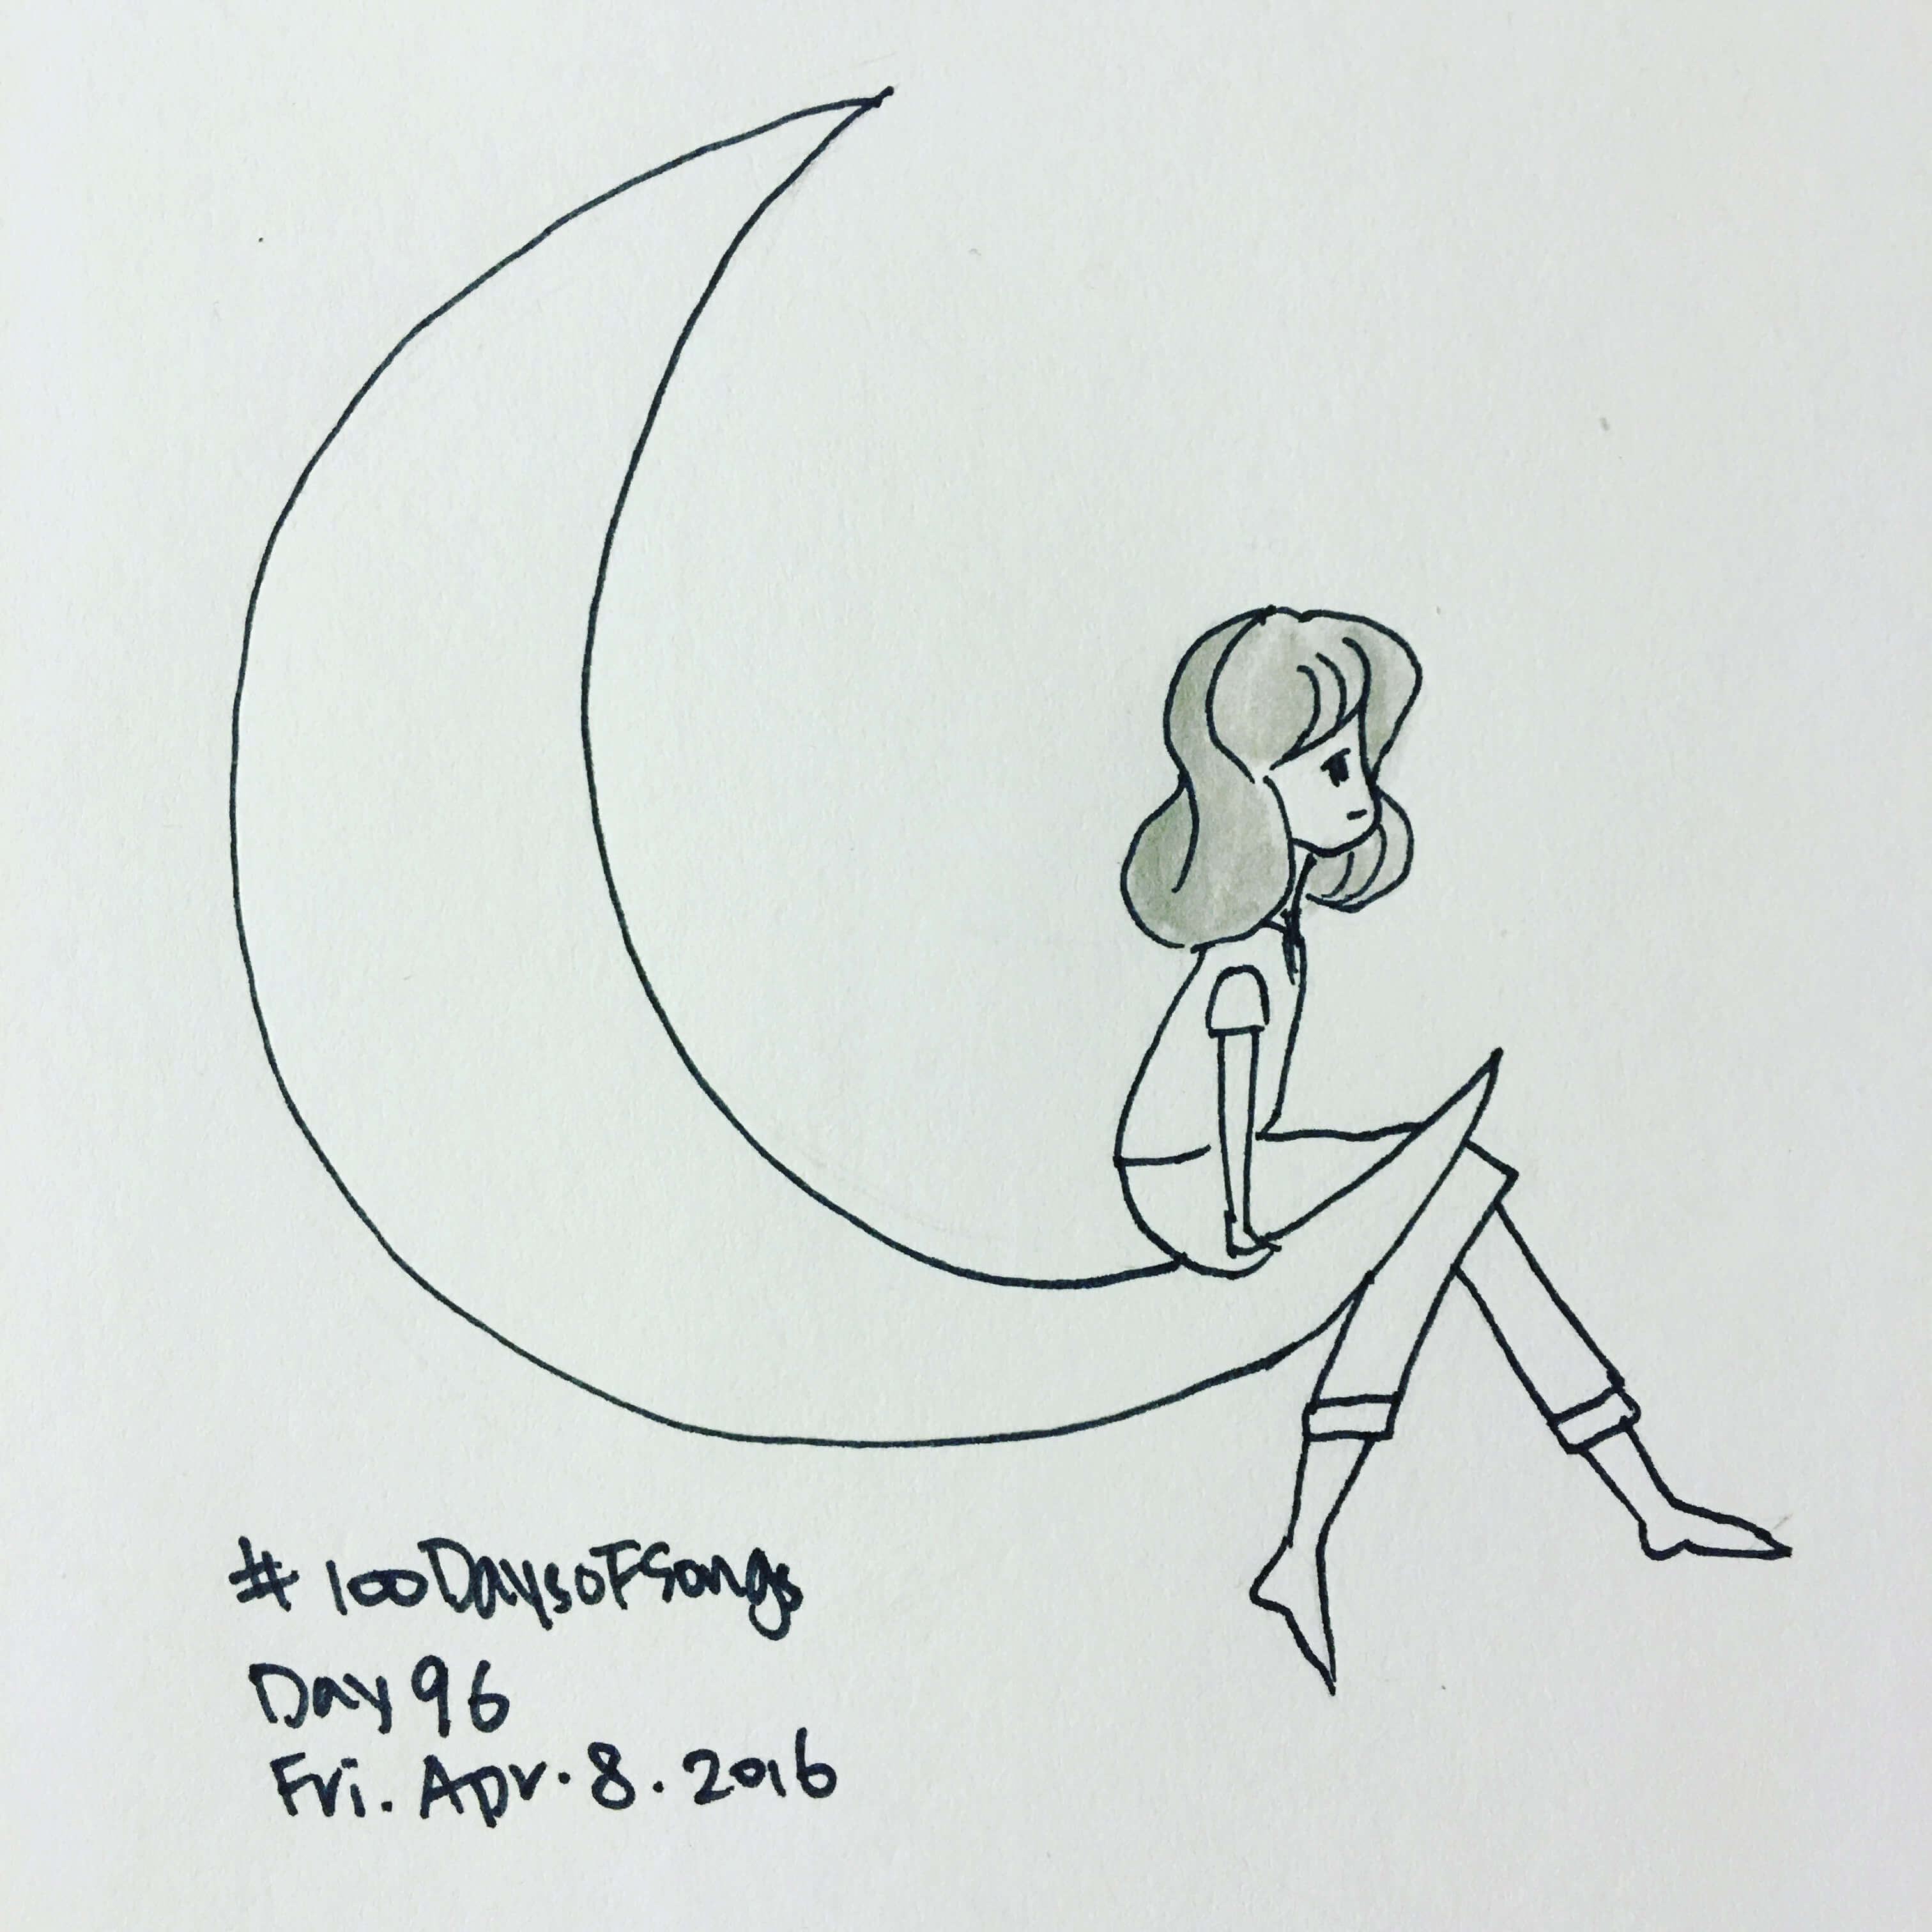 #100DaysofSongs
Day 96
Fri. Apr. 8. 2016